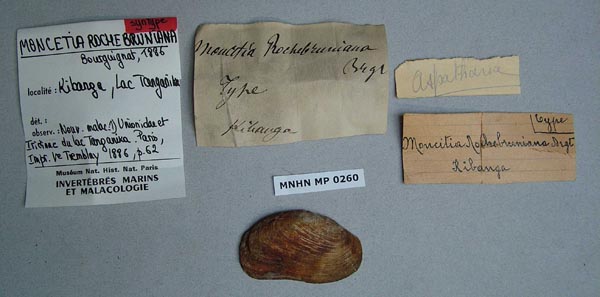 syntype
MONCETIA ROCHEBRUNIANA
Bourguignat, 1886
localité : Kibanga, Lac Tanganika
dét. :
observ. : Nouv. malac. I) Unionidae et
Iridinae du lac Tanganika. Paris,
Impr. Ve Tremblay 1886, p. 62
Muséum Nat. Hist. Nat. Paris
INVERTÉBRÉS MARINS
ET MALACOLOGIE
Moncetia Rochebruniana
Brgt
Type
Kibanga
Aspatharia
Type
Moncetia Rochebruniana Brgt
Kibanga
MNHN MP 0260